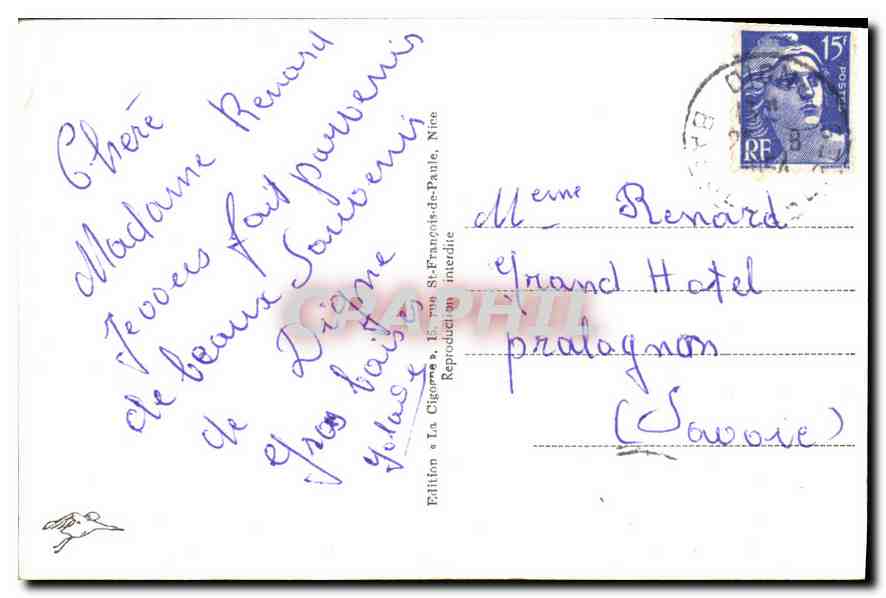 Chère
Madame Renard
Je vous fait parvenir
de beaux Souvenir
de Digne
Gros baiser
Yolande
Edition « La Cigogne », 15, rue St-François-de-Paule, Nice
Reproduction interdite
15F
POSTES
RF
Meme Renard
Grand Hotel
pralognon
(Savoie)
CPAPHIL